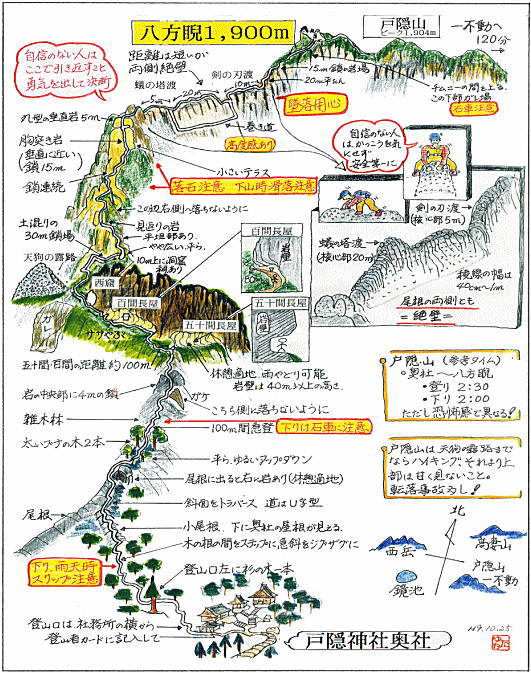 八方睨1,900m
戸隠山
ピーク1,904m
一不動へ
120分
自信のない人は
ここで引き返すこと
勇気を出して決断
距離は短いが
両側絶壁
蟻の塔渡
剣の刃渡
5m
20m
10m
15mの鎖の岩場
20m平たん
チムニーの間を上る
この下部ガレ場
石車注意
墜落用心
九型の垂直岩5m
巻き道
高度感あり
胸突き岩
(垂直に近い)
鎖15m
小さいテラス
鎖連続
落石注意 下山時滑落注意
自信のない人
はかっこうを気
にせず
安全第一に
この辺右側へ落ちないように
土混りの
30m鎖場
見返りの岩
平坦部あり
やや広い平ら
10m上に洞窟
祠あり
天狗の露路
百間長屋
岩屋
剣の刃渡
(核心部5m)
蟻の塔渡
(核心部20m)
稜線の幅は
40cm〜1m
尾根の両側とも
=絶壁=
西窟
百間長屋
五十間長屋
五十間長屋
ガレ
ササやぶ
五十間・百間の距離約100m
休憩適地、雨やどり可能
岩壁は40m以上の高さ
岩の中央部に4mの鎖
ガケ
こちら側に落ちないように
雑木林
100m間急登
下りは石車に注意
太いブナの木2本
平ら、ゆるいアップダウン
尾根に出ると右に岩あり(休憩適地)
尾根
斜面をトラバース 道はU字型
小尾根、下に奥社の屋根が見える
木の根の間をステップに、急斜をジグザグに
下り、雨天時
スリップ注意
登山口左に杉の木一本
登山口は、社務所の横から
登山者カードに記入して
戸隠神社奥社
戸隠山(参考タイム)
○奥社〜八方睨
・登り 2:30
・下り 2:00
ただし恐怖感で異なる!
戸隠山は天狗の露路まで
ならハイキング、それより上
部は甘く見ないこと。
転落事故多し!
北
西岳
高妻山
戸隠山
一不動
鏡池
H9.10.25